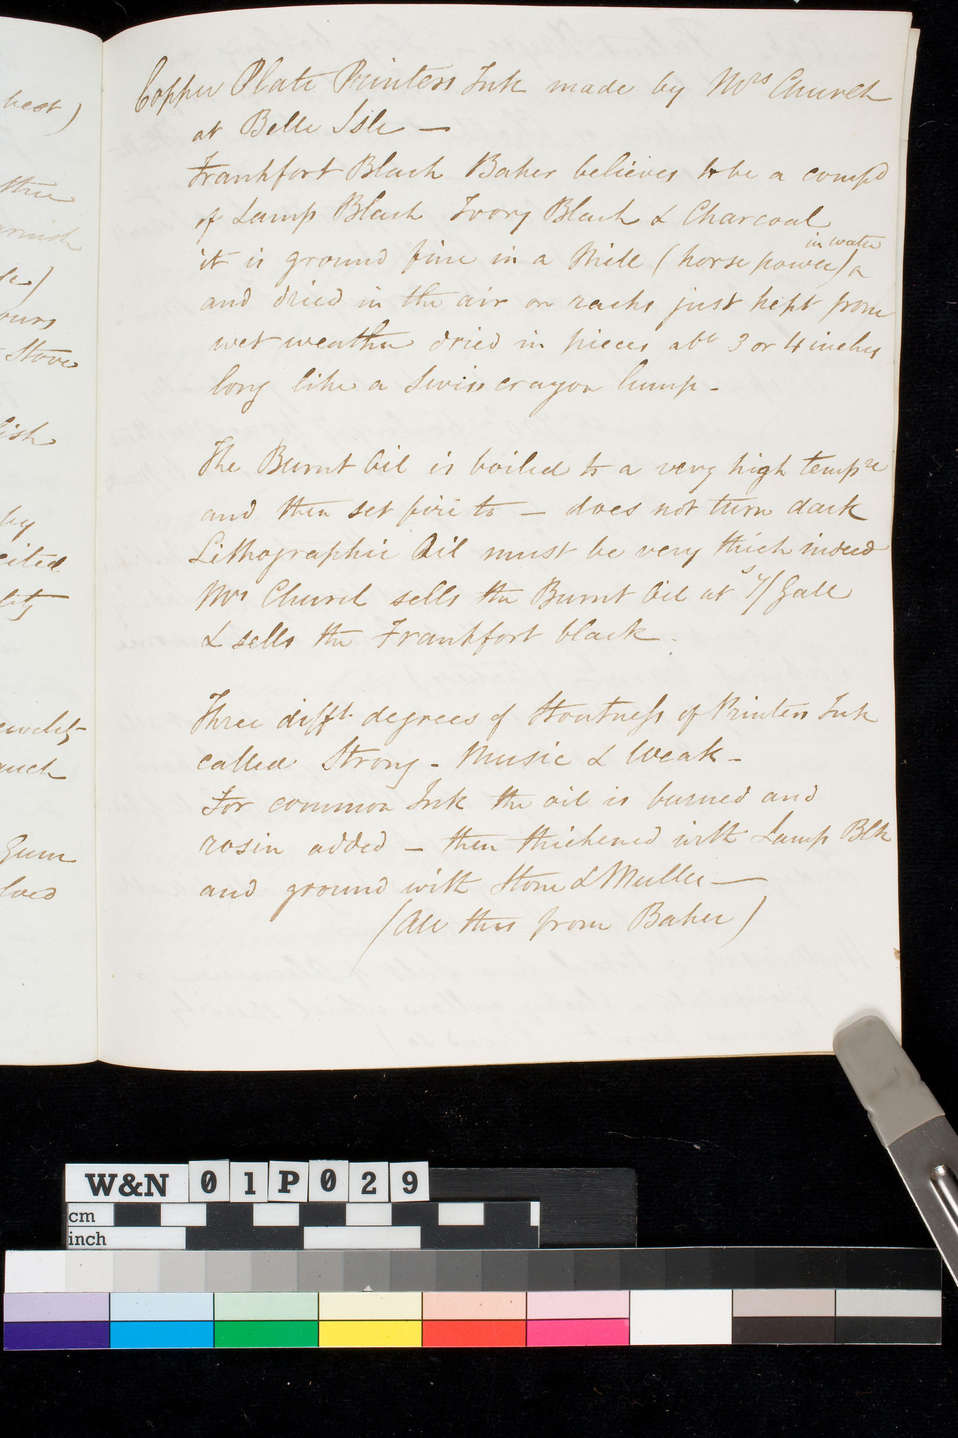 best)
thin
rnish
de)
ours
Stove
lish
by
cited
lity
auch
Gum
lved
Copper Plate Printers Ink made by Mrs Church
at Belle Isle —
Frankfort Black Baker believes to be a comp'd
of Lamp Black Ivory Black & Charcoal
in water
it is ground fine in a Mill (horse power) ^
and dried in the air on racks just kept from
wet weather dried in pieces abt 3 or 4 inches
long like a Swiss crayon lump -
The Burnt Oil is boiled to a very high tempre
and then set fire to — does not turn dark
Lithographic Oil must be very thick indeed
Mrs Church sells the Burnt Oil at Gall
& sells the Frankfort black.
Three difft. degrees of Stoutness of Printers Ink
called Strong - Music & Weak -
For common Ink the oil is burned and
rosin added - then thickened with Lamp Blk
and ground with Stone & Muller —
(All this from Baker)
W&N 01P029
cm
inch